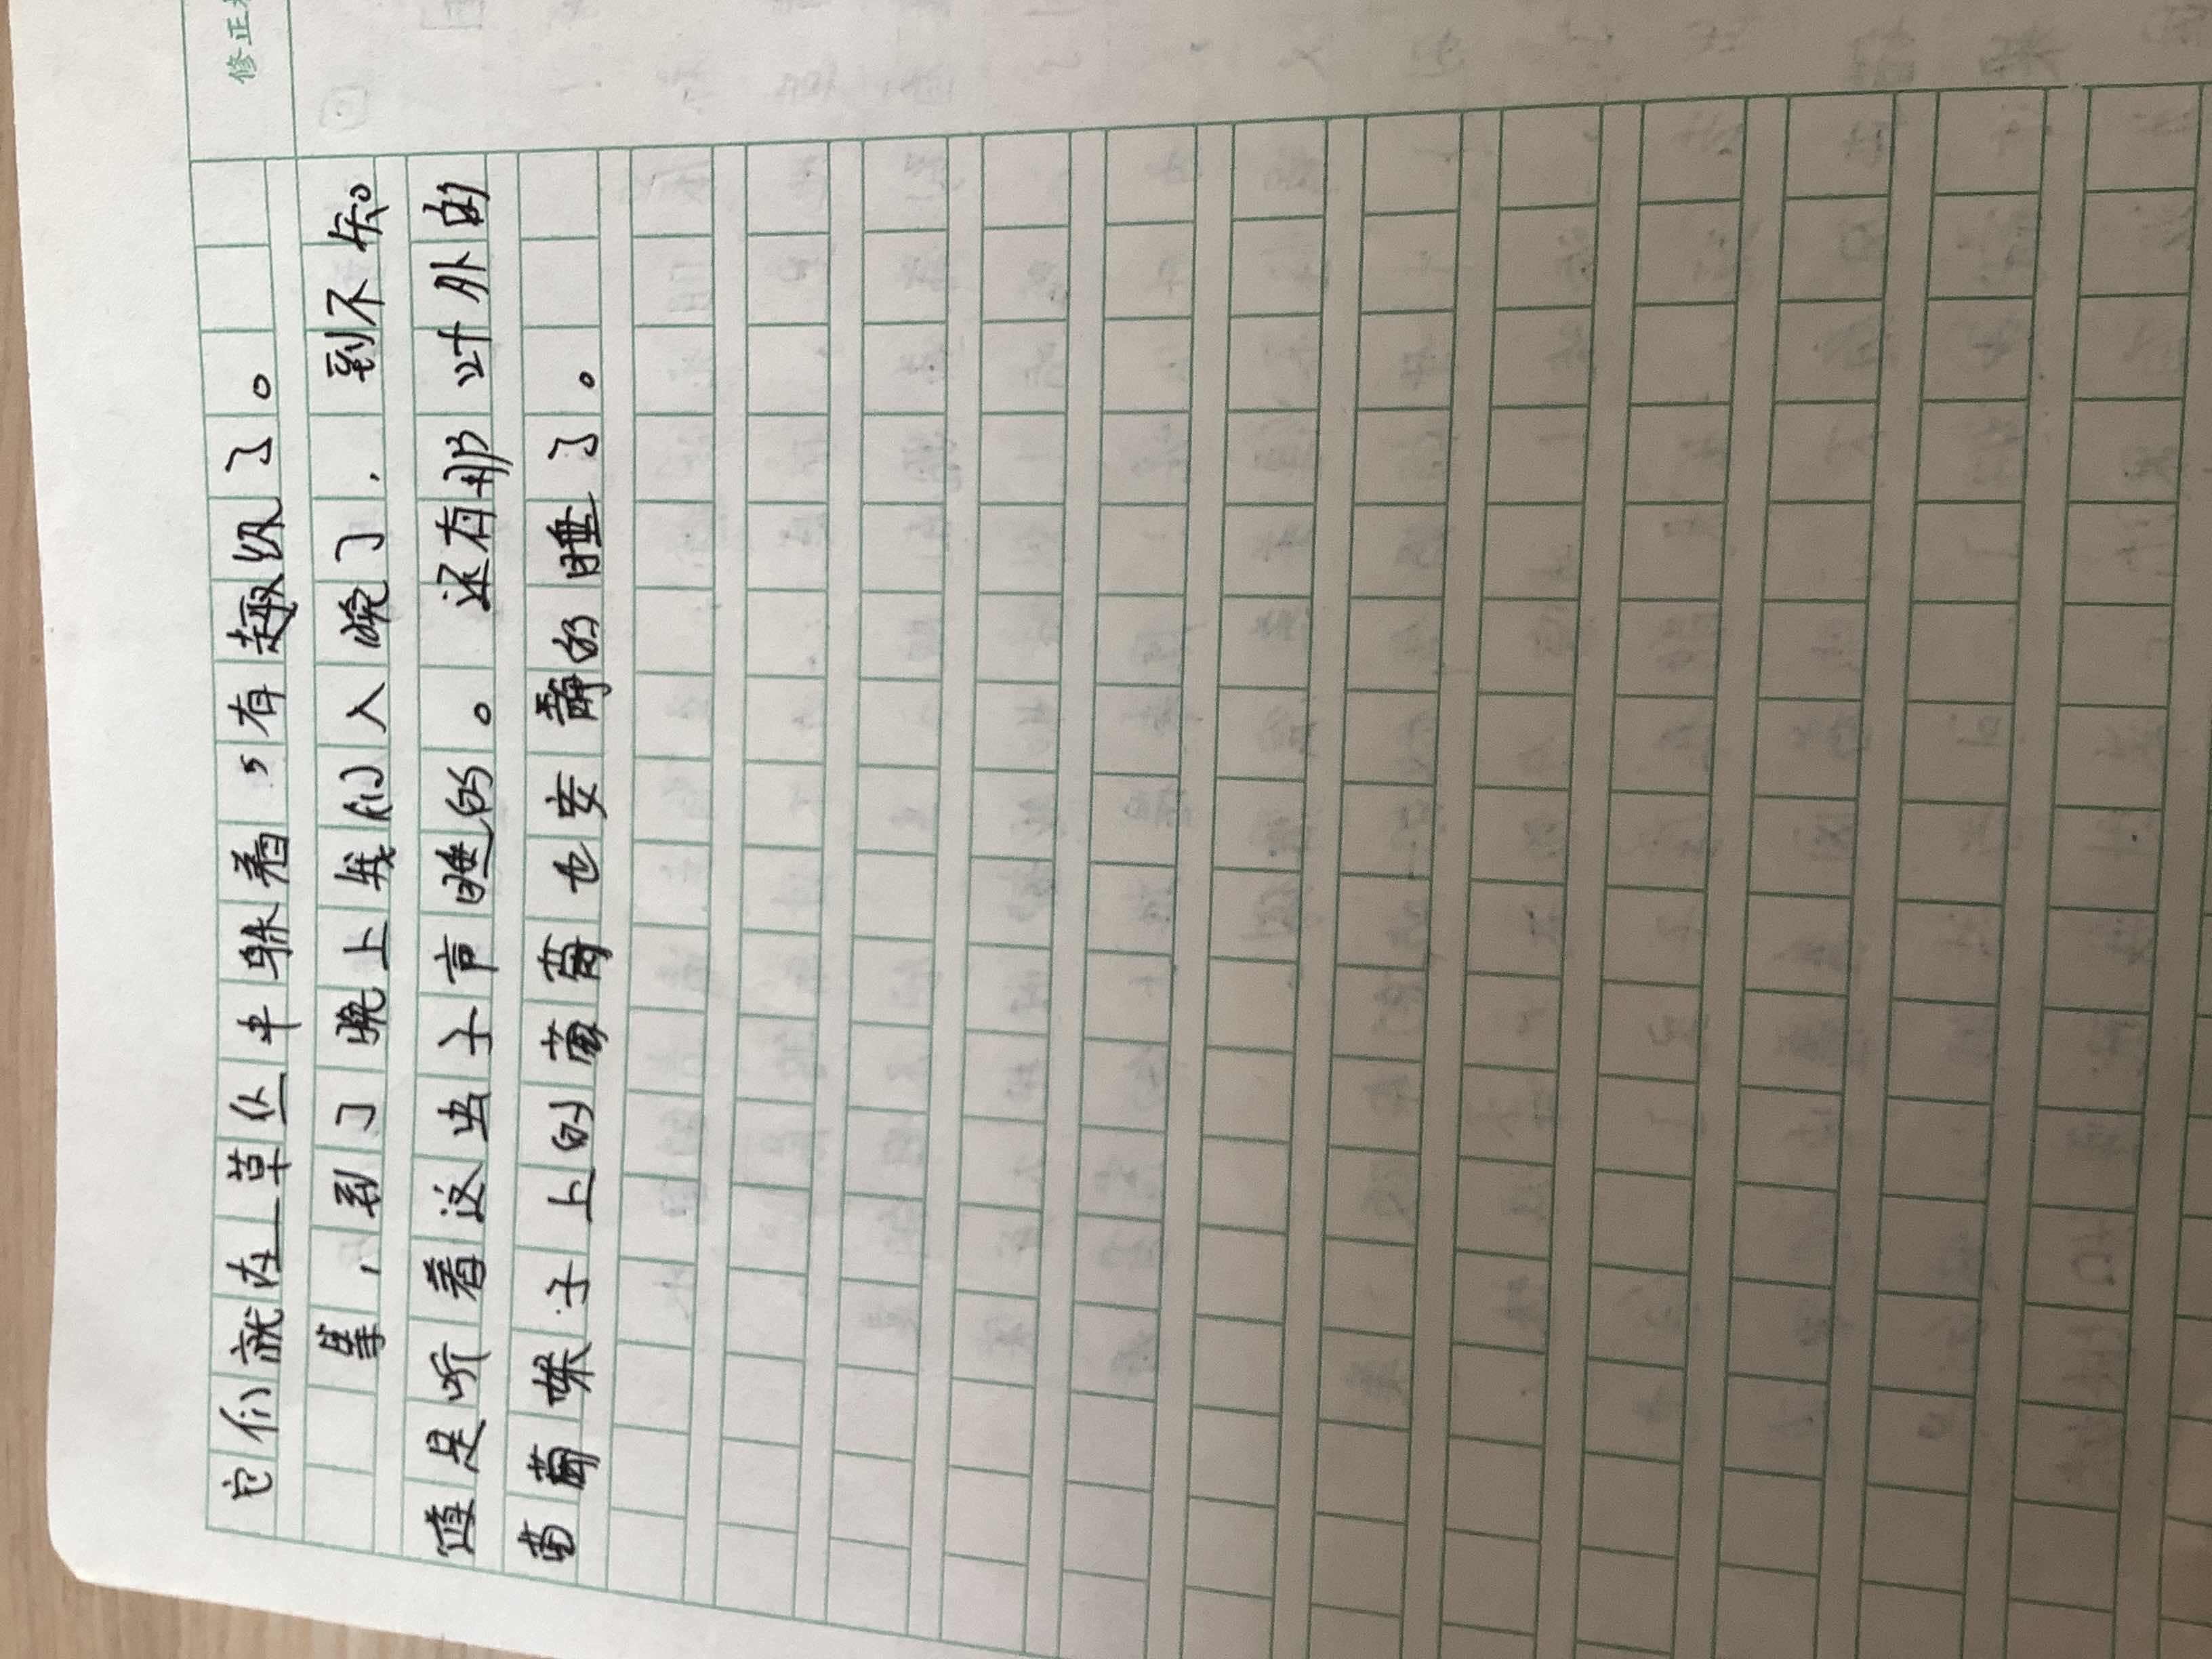 修正
它们就在草丛中躲着，有趣级了。
等，到了晚上我们入晚了，到不知
道是听着这虫子声睡的。还有那叶外的
葡萄架子上的葡萄也安静的睡了。